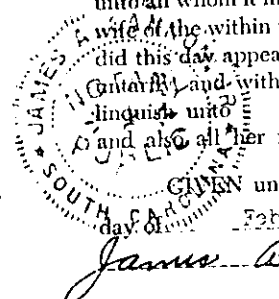 unto all whom it m
wife of the within
did this day appea
untarily and with
linquish unto
and also all her
GIVEN un
day of Feb
James
JAMES A
SOUTH CAROLINA